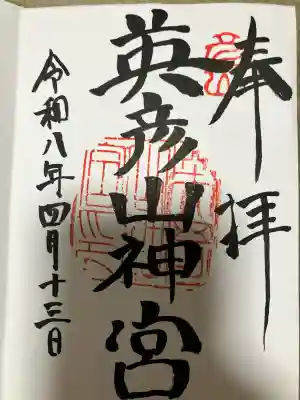 奉拝
英彦山神宮
令和八年四月十三日